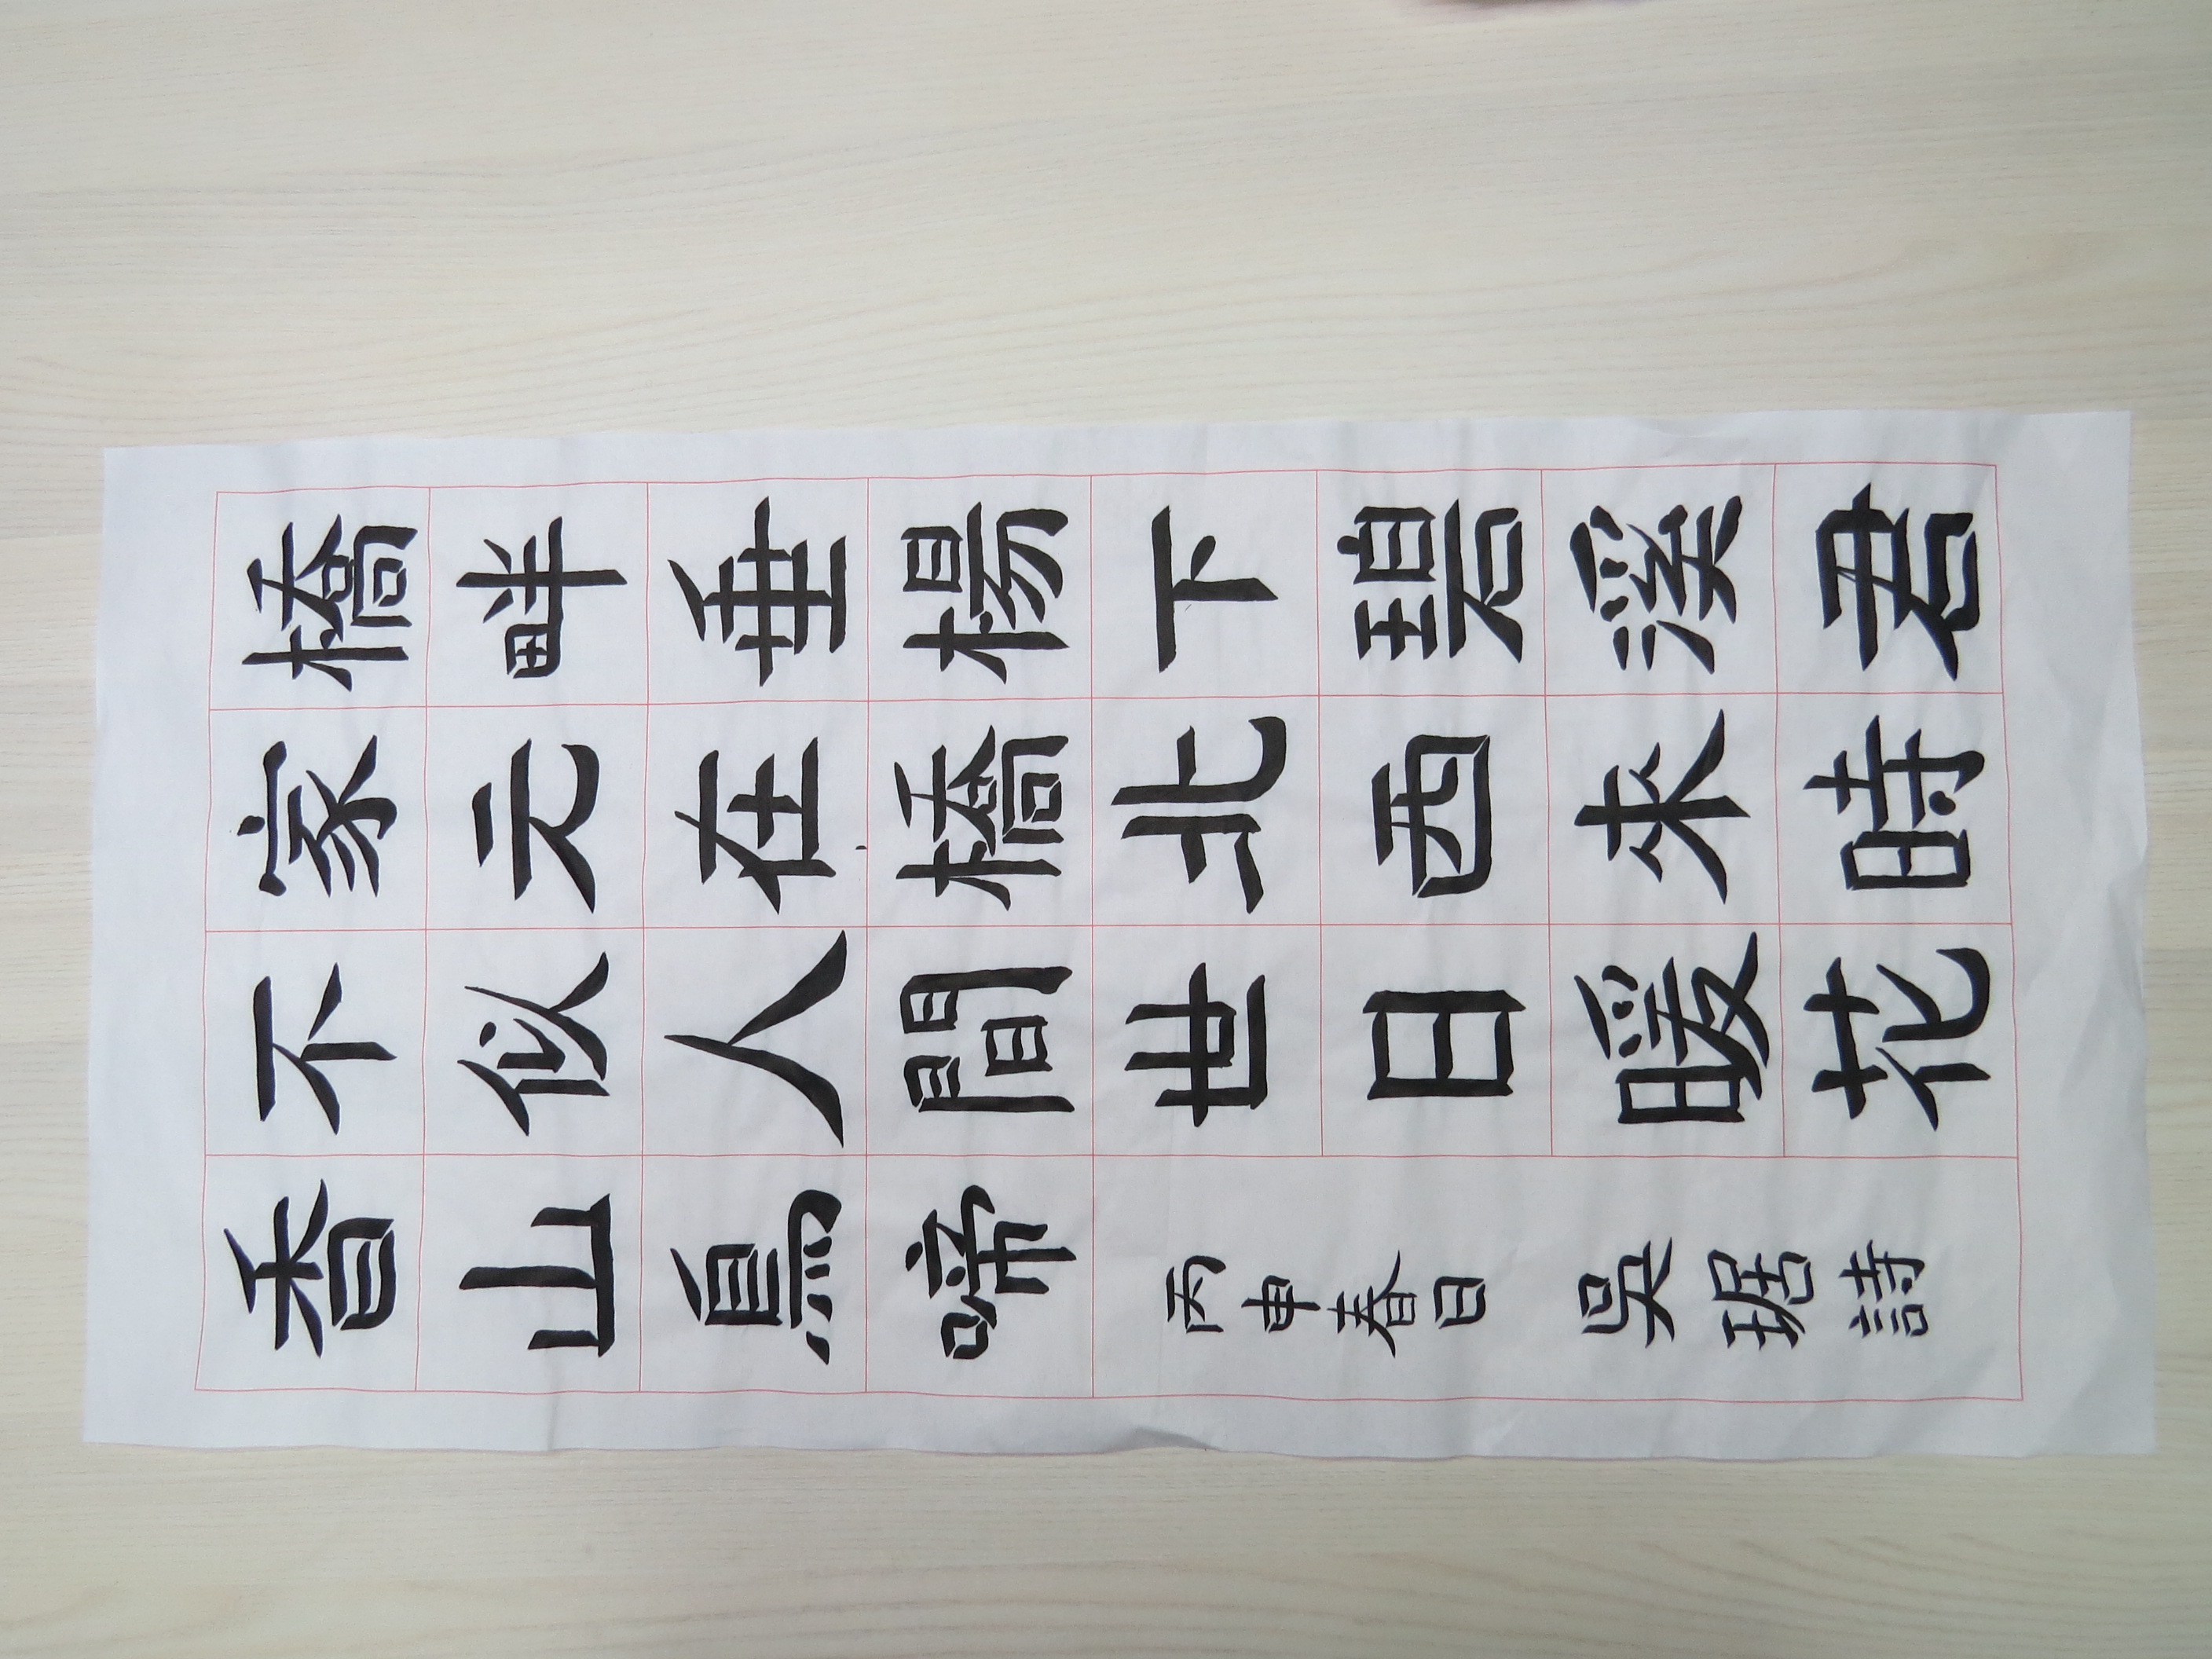 橋畔垂楊下碧溪君
家元在橋北西来時
不似人間世日暖花
香山鳥啼
丙申春日 吳琚詩